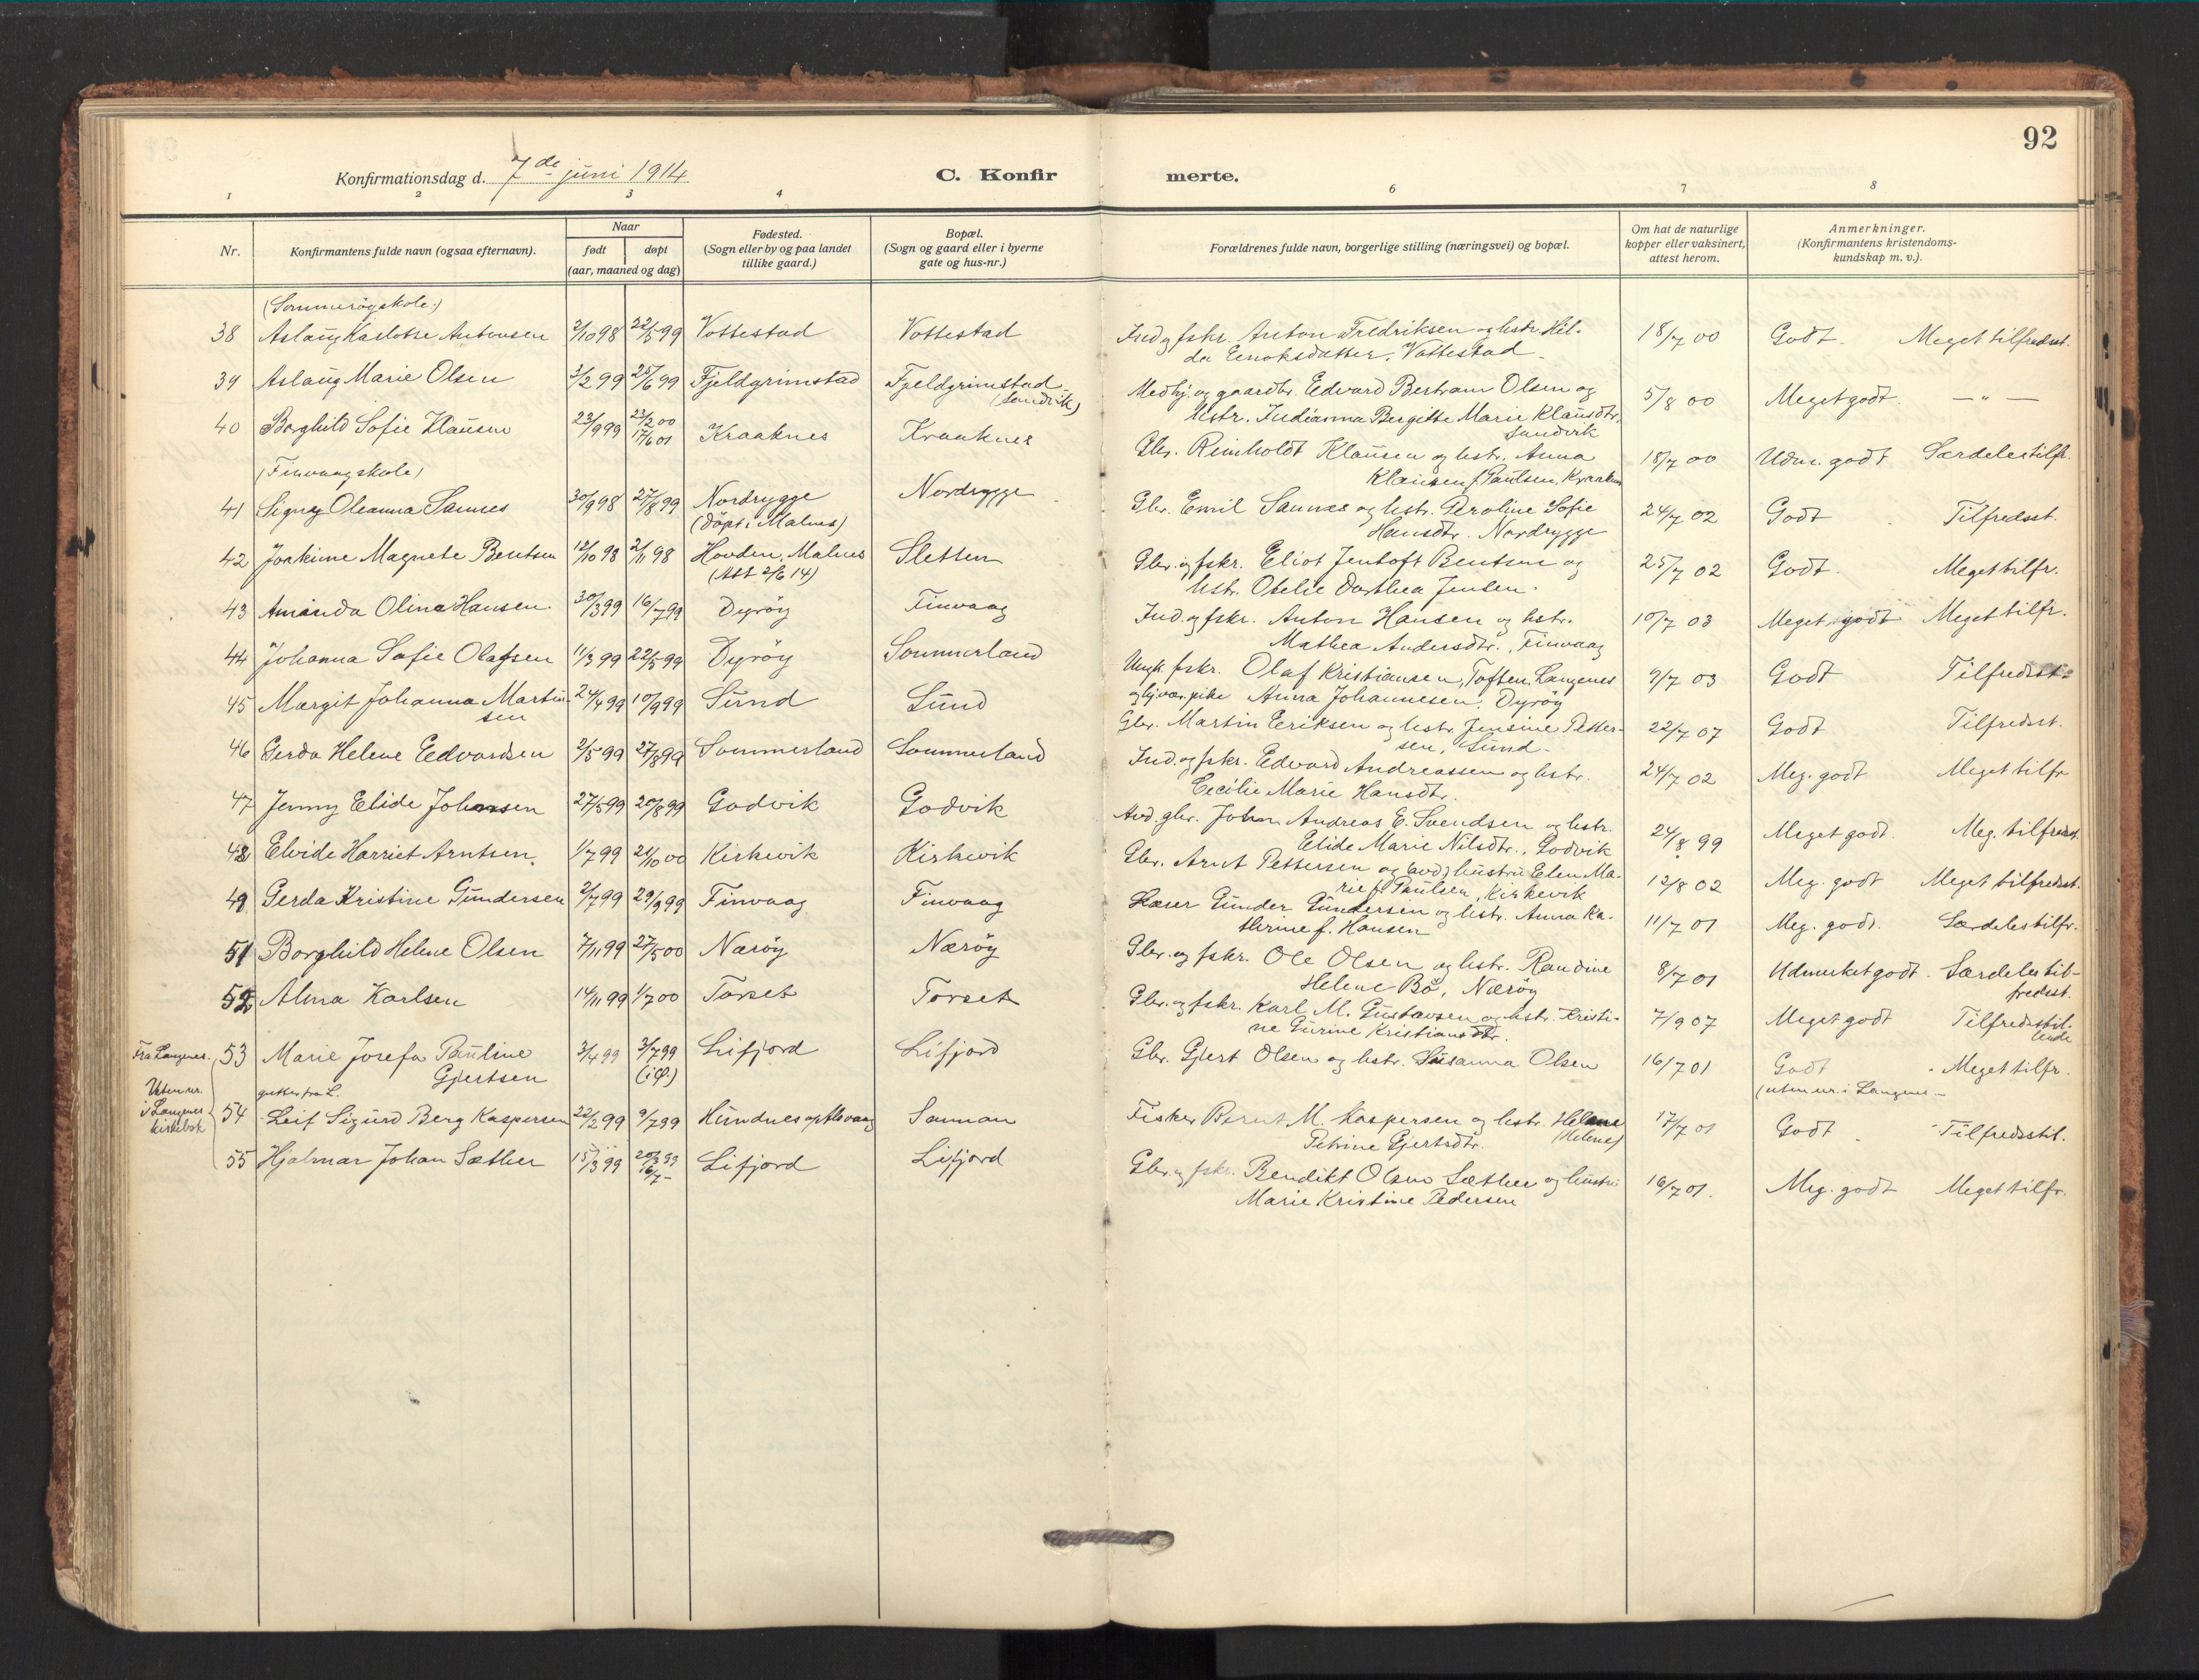 92
Konfirmationsdag d. 7de juni 1914
C. Konfirmerte.
1 2 3 4 6 7 8
Nr.
Konfirmantens fulde navn (ogsaa efternavn).
Naar
født
døpt
(aar, maaned og dag)
Fødested.
(Sogn eller by og paa landet
tillike gaard.)
Bopæl.
(Sogn og gaard eller i byerne
gate og hus-nr.)
Forældrenes fulde navn, borgerlige stilling (næringsvei) og bopæl.
Om hat de naturlige
kopper eller vaksinert,
attest herom.
Anmerkninger.
(Konfirmantens kristendoms-
kundskap m. v.).
(Sommerøyskole:)
38 Aslaug Karlotte Antonsen 2/10 98 22/5 99 Vottestad Vottestad Ind. og fskr. Anton Fredriksen og hstr. Hil-
da Enoksdatter, Vottestad 18/7 00 Godt. Meget tilfredsst.
39 Aslaug Marie Olsen 3/2 99 25/6 99 Fjeldgrimstad Fjeldgrimstad
(Sandvik) Medhj. og gaardbr. Edvard Bertram Olsen og
hstr. Indianna Bergitte Marie Klausdtr.
Sandvik 5/8 00 Meget godt. — " —
40 Borghild Sofie Klausen 23/9 99 23/2 00
17/6 01 Kraaknes Kraaknes Gbr. Reinholdt Klausen og hstr. Anna
Klausen f. Paulsen, Kraaknes 18/7 00 Udm. godt Særdeles tilfr.
(Finvaag skole)
41 Signy Oleanna Sannes 30/9 98 27/8 99 Nordrygge
(døpt i Malnes) Nordrygge Gbr. Emil Sannes og hstr. Peroline Sofie
Hansdtr. Nordrygge 24/7 02 Godt Tilfredsst.
42 Joakime Magnete Bentsen 12/10 98 2/11 98 Hovden, Malnes
(Att 2/6 14) Sletten Gbr. og fskr. Eliot Jentoft Bentsen og
hstr. Otelie Dorthea Jensen. 25/7 02 Godt. Meget tilfr.
43 Amanda Olina Hansen 30/3 99 16/7 99 Dyrøy Finvaag Ind. og fskr. Anton Hansen og hstr.
Mathea Andersdtr., Finvaag 10/7 03 Meget godt Meget tilfr.
44 Johanna Sofie Olafsen 11/3 99 22/5 99 Dyrøy Sommerland Ungk. fskr. Olaf Kristiansen, Toften, Langenes
og hjvær. pike Anna Johannesen, Dyrøy 9/7 03 Godt Tilfredsst.
45 Margit Johanna Martin-
sen 24/4 99 10/9 99 Sund Sund Gbr. Martin Eriksen og hstr. Jensine Petter-
sen, Sund 22/7 07 Godt Tilfredsst.
46 Gerda Helene Edvardsen 2/5 99 27/8 99 Sommerland Sommerland Ind. og fskr. Edvard Andreassen og hstr.
Cecilie Marie Hansdtr. 24/7 02 Meg. godt Meget tilfr
47 Jenny Elide Johansen 27/5 99 20/8 99 Godvik Godvik Avd. gbr. Johan Andreas E. Svendsen og hstr.
Elide Marie Nilsdtr., Godvik 24/8 99 Meget godt. Meg. tilfredsst.
48 Elvide Harriet Arntsen. 1/7 99 21/10 00 Kirkevik Kirkevik Gbr. Arnt Pettersen og (avd.) hustru Elen Ma-
rie f. Paulsen, Kirkevik 12/8 02 Meg. godt Meget tilfredsst.
49 Gerda Kristine Gundersen 2/7 99 29/9 99 Finvaag Finvaag Lærer Gunder Gundersen og hstr. Anna Ka-
thrine f. Hansen 11/7 01 Meg. godt. Særdeles tilfr.
51 Borghild Helene Olsen 7/11 99 27/5 00 Nærøy Nærøy Gbr. og fskr. Ole Olsen og hstr. Randine
Helene Bø, Nærøy 8/7 01 Udmerket godt. Særdeles til-
fredsst.
52 Alma Karlsen 14/11 99 1/7 00 Torset Torset Gbr. og fskr. Karl M. Gustavsen og hstr. Kristi-
ne Gurine Kristiansdtr. 7/9 07 Meget godt Tilfredsstil-
lende
Fra Langenes.
Uten nr.
i Langenes
kirkebok
53 Marie Josefa Pauline
Gjertsen 3/4 99 3/7 99
(i Ø.) Lifjord Lifjord Gbr. Gjert Olsen og hstr. Susanna Olsen 16/7 01 Godt Meget tilfr.
(uten nr. i Langenes —
gutter fra L.
54 Leif Sigurd Berg Kaspersen 22/2 99 9/7 99 Hundnes Sannan Fisker Bernt M. Kaspersen og hstr. Helena
(Helene)
Petrine Gjertsdtr. 17/7 01 Godt Tilfredsstil.
55 Hjalmar Johan Sæther 15/3 99 20/3 99
16/7 – Lifjord Lifjord Gbr. og fskr. Bendikt Olsen Sæther og hustru
Marie Kristine Pedersen 16/7 01. Meg. godt Meget tilfr.